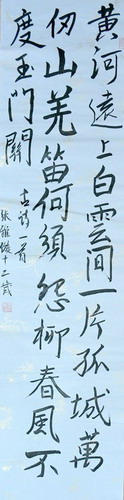 黃河遠上白雲間一片孤城萬
仞山羌笛何須怨柳春風不
度玉門關
古詩一首
張維燧十二歲